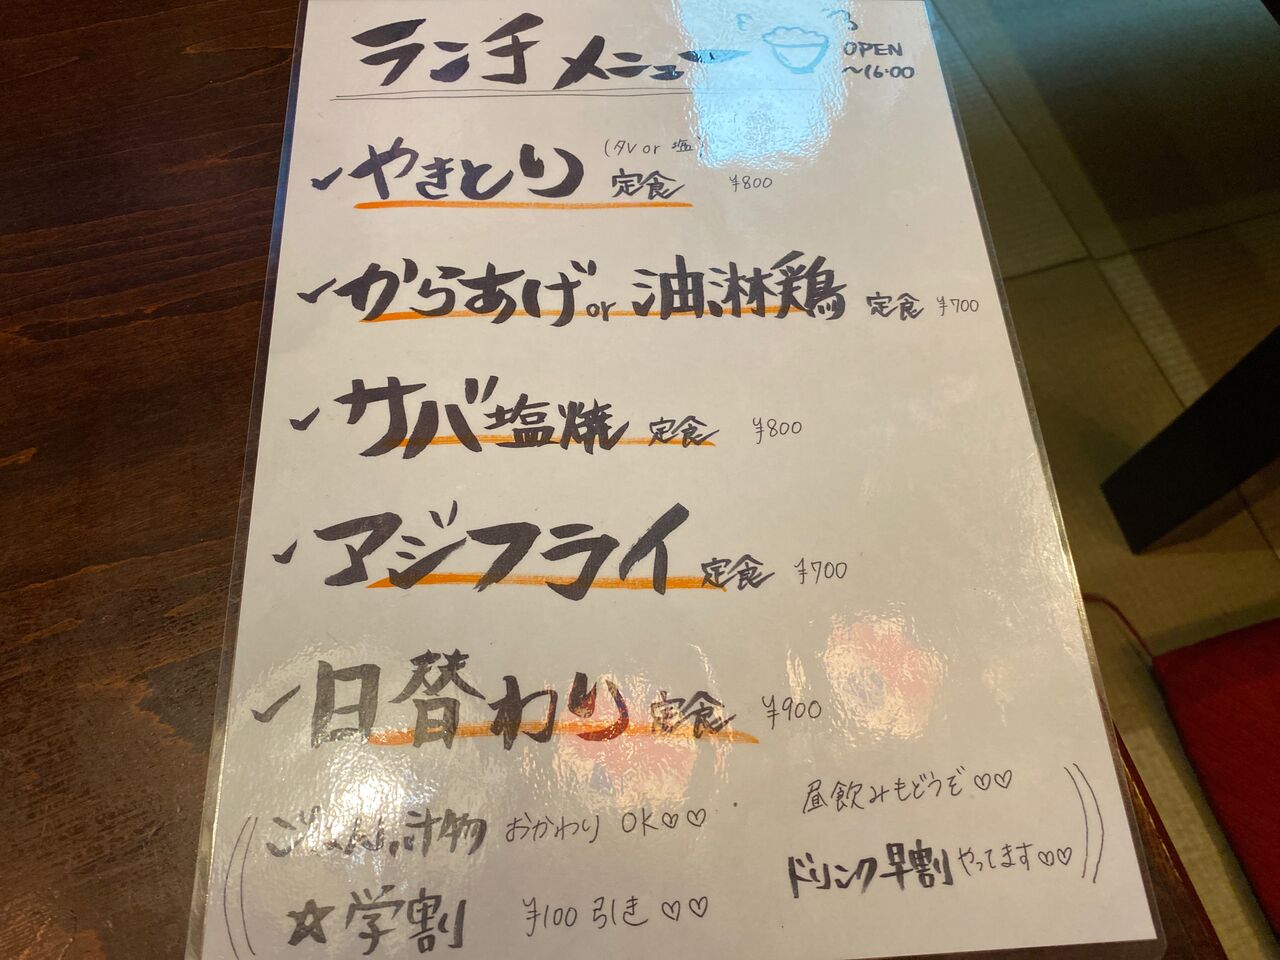 ランチメニュー
OPEN
～16:00
✓やきとり (タレ or 塩) 定食 ¥800
✓からあげ or 油淋鶏 定食 ¥700
✓サバ塩焼 定食 ¥800
✓アジフライ 定食 ¥700
✓日替わり 定食 ¥900
ごはん、汁物 おかわり OK♡♡
☆学割 ¥100引き♡♡
昼飲みもどうぞ♡♡
ドリンク早割やってます♡♡